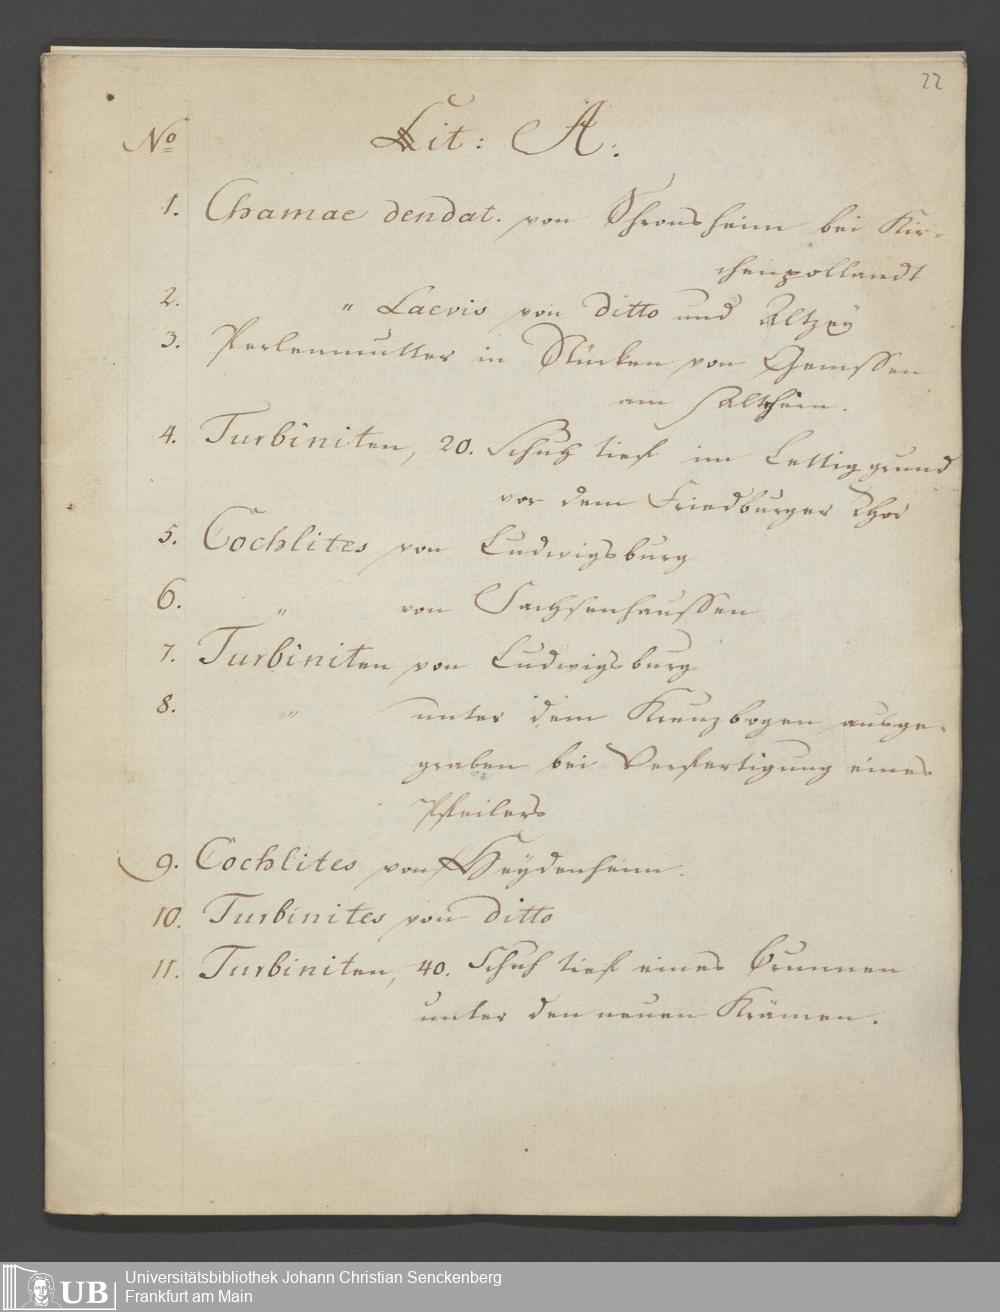 22
No Lit: A:
1. Chamae dendat. von Ehronsheim bei Kir-
chenpollandt
2. " Laevis von ditto und Altzeÿ
3. Perlenmutter in Stücken von Gemssen
am
4. Turbiniten, 20. Schuh tief im Lettiggrund
vor dem Friedburger Thor
5. Cochlites von Ludwigsburg
6. " von Sachsenhaussen
7. Turbiniten von Ludwigsburg
8. " unter dem Kreuzbogen ausge-
graben bei Verfertigung eines
Pfeilers
9. Cochlites von Heÿdenheim.
10. Turbinites von ditto
11. Turbiniten, 40. Schuh tief eines Brunnen
unter den neuen Krämen.
UB Universitätsbibliothek Johann Christian Senckenberg
Frankfurt am Main